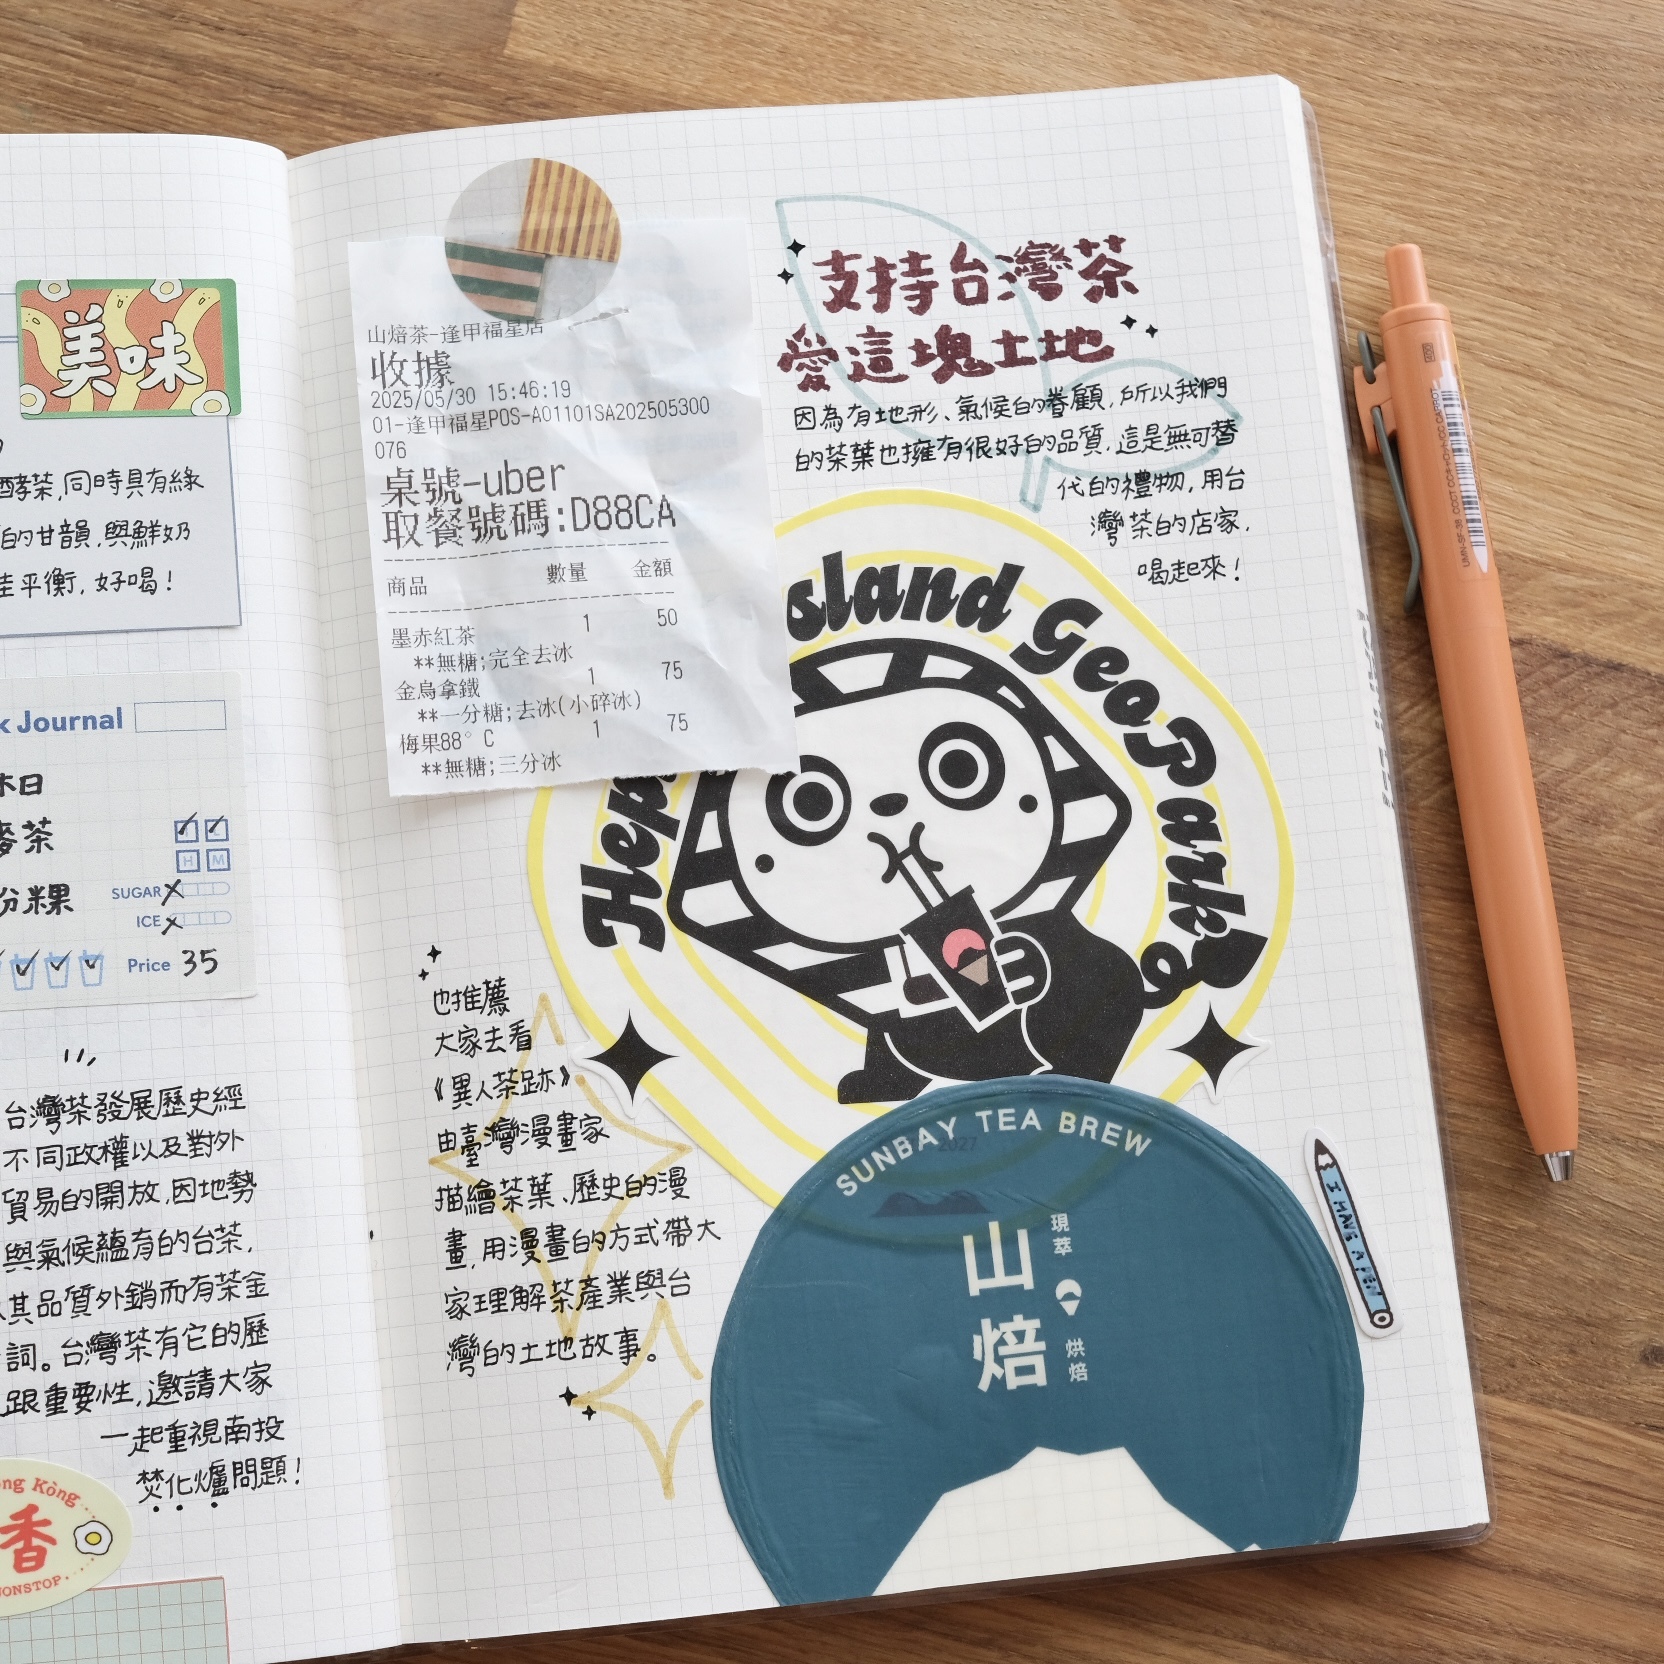 美味
酵茶,同時具有綠
的甘韻,與鮮奶
佳平衡,好喝!
k Journal
木日
麥茶
粉粿
H M
SUGAR
ICE
Price 35
台灣茶發展歷史經
不同政權以及對外
貿易的開放,因地勢
與氣候蘊育的台茶,
其品質外銷而有茶金
詞。台灣茶有它的歷
跟重要性,邀請大家
一起重視南投
焚化爐問題!
ong Kòng
香
NONSTOP
山焙茶-逢甲福星店
收據
2025/05/30 15:46:19
01-逢甲福星POS-A01101SA202505300
076
桌號-uber
取餐號碼:D88CA
商品 數量 金額
墨赤紅茶 1 50
**無糖;完全去冰
金烏拿鐵 1 75
**一分糖;去冰(小碎冰)
梅果88°C 1 75
**無糖;三分冰
支持台灣茶
愛這塊土地
因為有地形、氣候的眷顧,所以我們
的茶葉也擁有很好的品質,這是無可替
代的禮物,用台
灣茶的店家,
喝起來!
Hep sland GeoPark
也推薦
大家去看
《異人茶跡》
由臺灣漫畫家
描繪茶葉、歷史的漫
畫,用漫畫的方式帶大
家理解茶產業與台
灣的土地故事。
SUNBAY TEA BREW
2027
山焙
現萃
烘焙
I HAVE A PEN
UMN-SF-38
CARROT